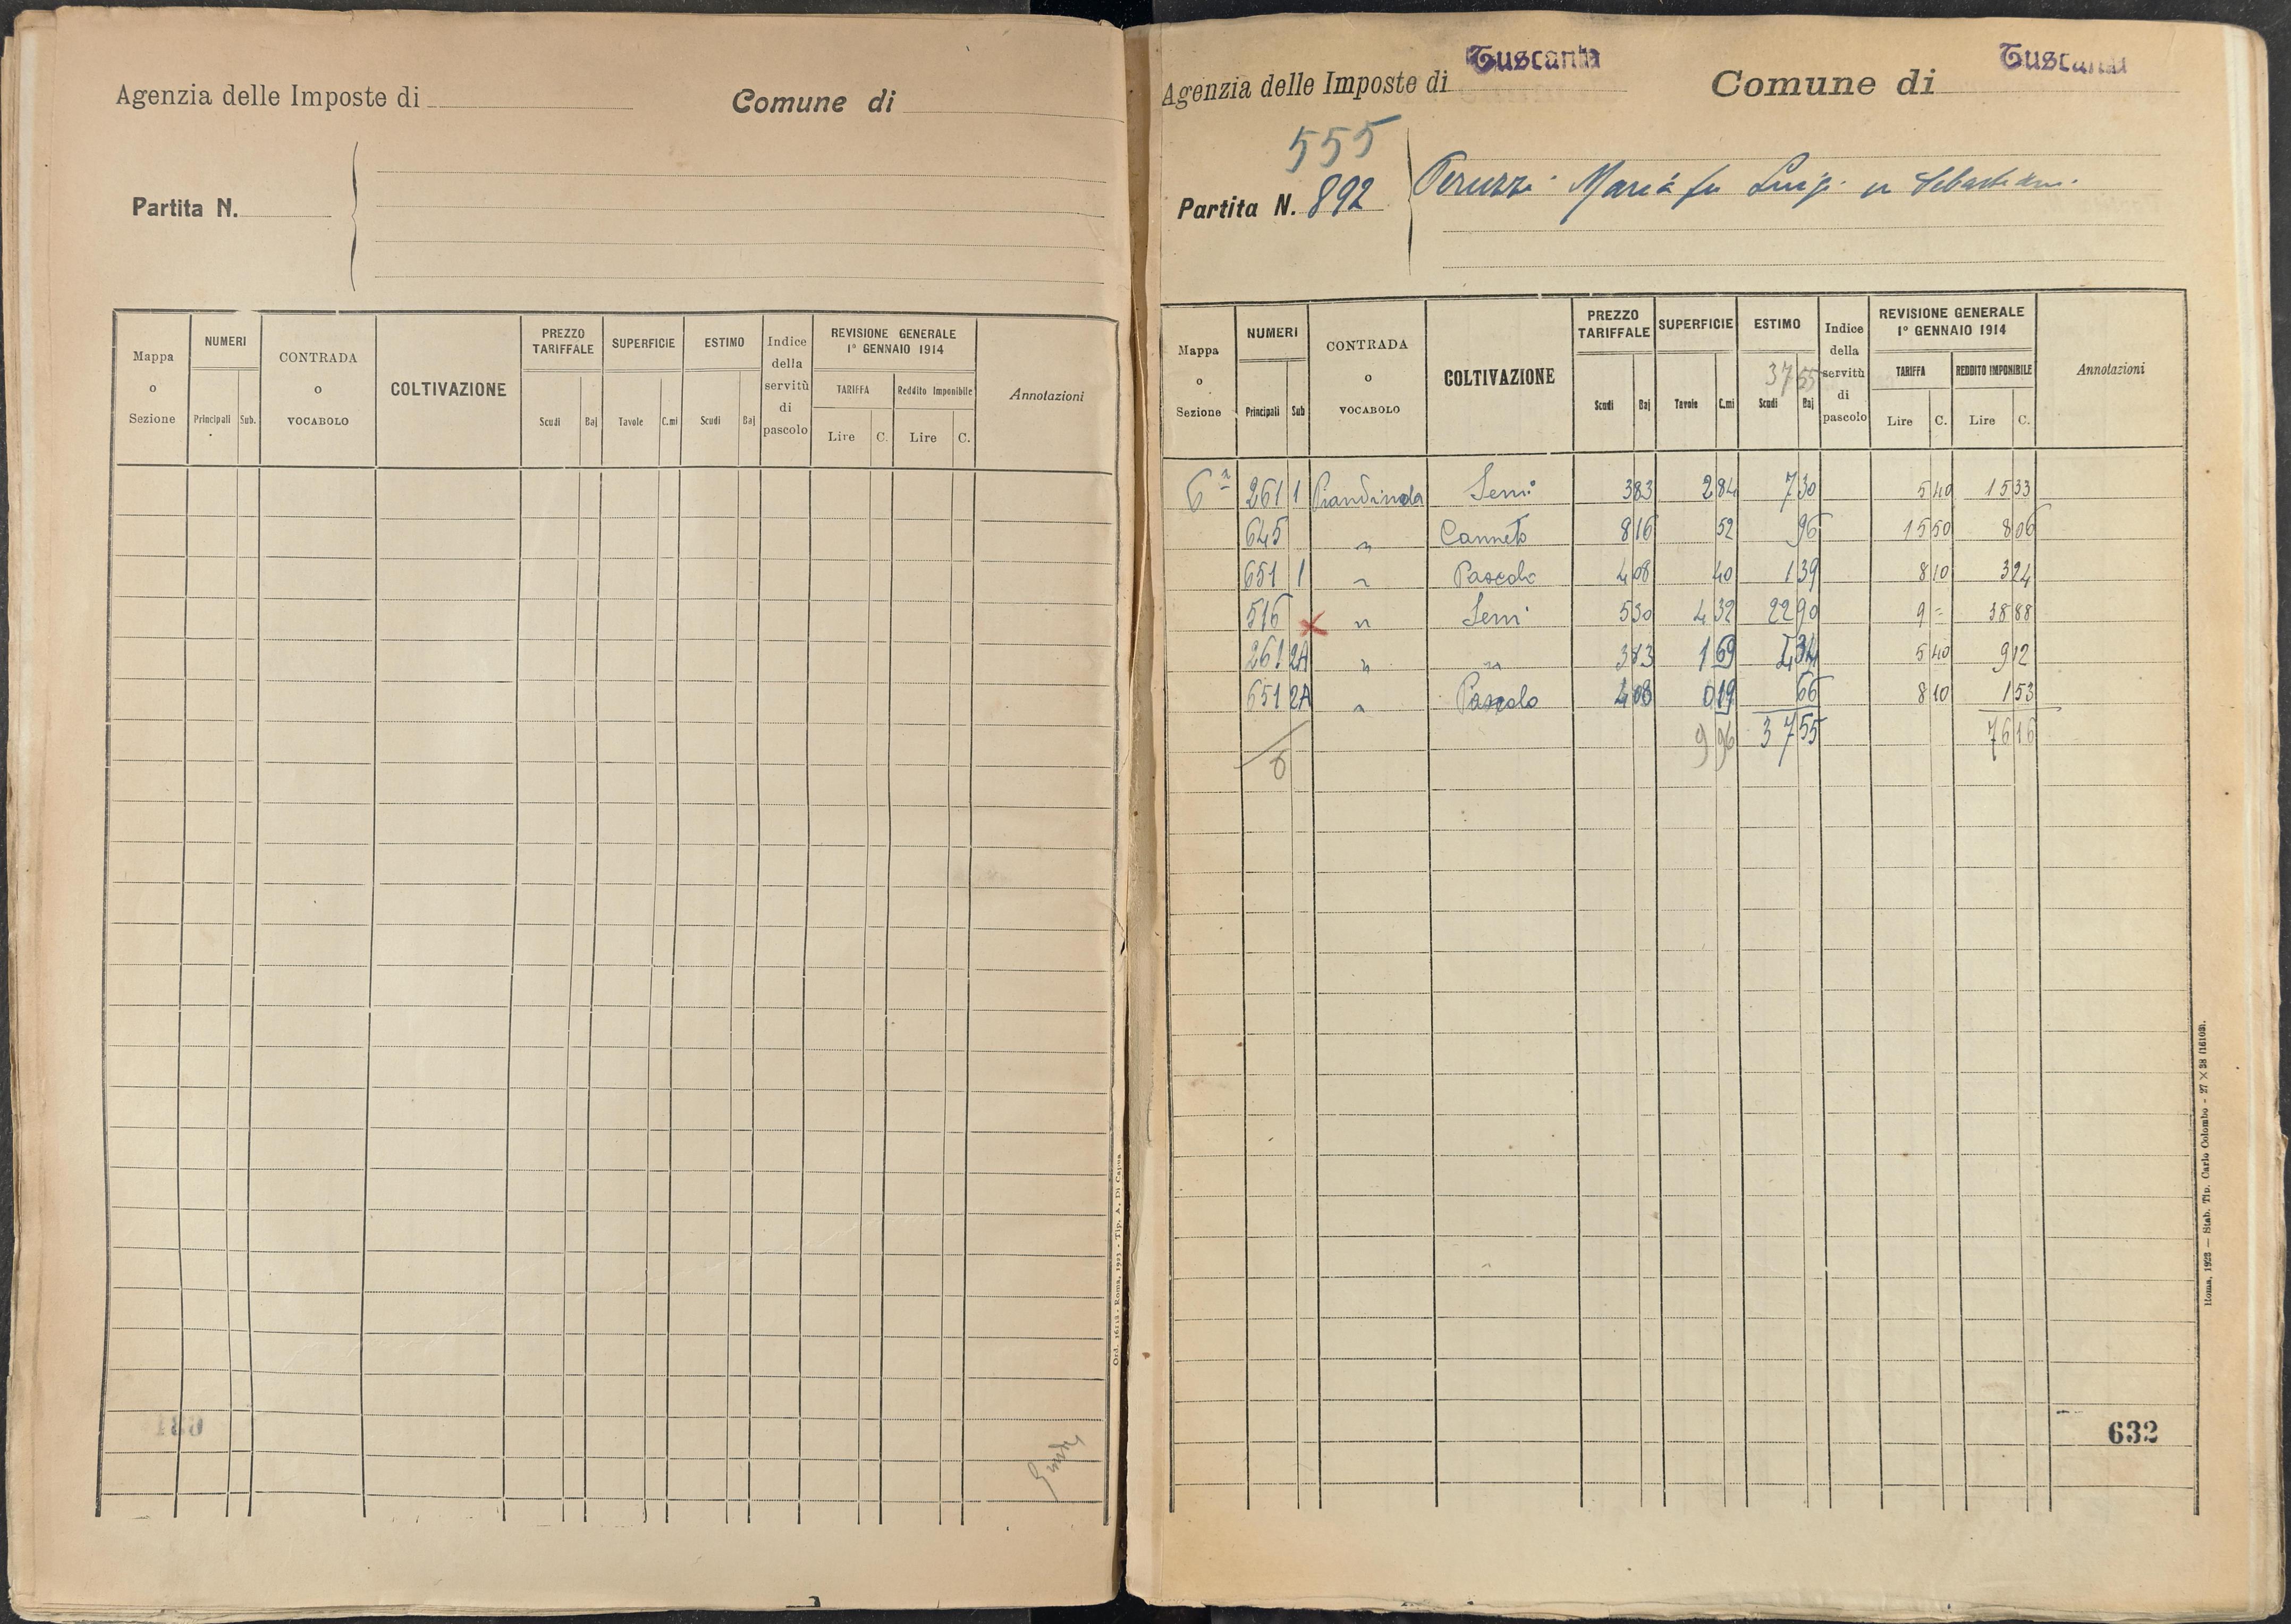 Agenzia delle Imposte di
Comune di
Partita N.
Mappa o Sezione
NUMERI
Principali Sub.
CONTRADA o VOCABOLO
COLTIVAZIONE
PREZZO TARIFFALE
Scudi Baj
SUPERFICIE
Tavole C.mi
ESTIMO
Scudi Baj
Indice della servitù di pascolo
REVISIONE GENERALE
1° GENNAIO 1914
TARIFFA
Lire C.
Reddito Imponibile
Lire C.
Annotazioni
631
Ord. 16112 - Roma, 1923 - Tip. A. Di Capua
Agenzia delle Imposte di Tuscania
Comune di Tuscania
555
Partita N. 892
Peruzzi Maria fu Luigi in Sebastiani
Mappa o Sezione
NUMERI
Principali Sub
CONTRADA o VOCABOLO
COLTIVAZIONE
PREZZO TARIFFALE
Scudi Baj
SUPERFICIE
Tavole C.mi
ESTIMO
37 55
Scudi Baj
Indice della servitù di pascolo
REVISIONE GENERALE
1° GENNAIO 1914
TARIFFA
Lire C.
REDDITO IMPONIBILE
Lire C.
Annotazioni
6ª 261 1 Semi 3 83 2 84 7 30 5 40 15 33
645 " Canneto 8 16 52 96 15 50 8 06
651 1 " Pascolo 4 08 40 1 39 8 10 3 24
516 x " Semi 5 30 4 32 22 90 9 = 38 88
261 2A " " 3 83 1 69 4 34 5 40 9 12
651 2A " Pascolo 4 08 0 19 66 8 10 1 53
9 96 37 55 76 16
6
632
Roma, 1923 — Stab. Tip. Carlo Colombo - 27 X 38 (1610m.